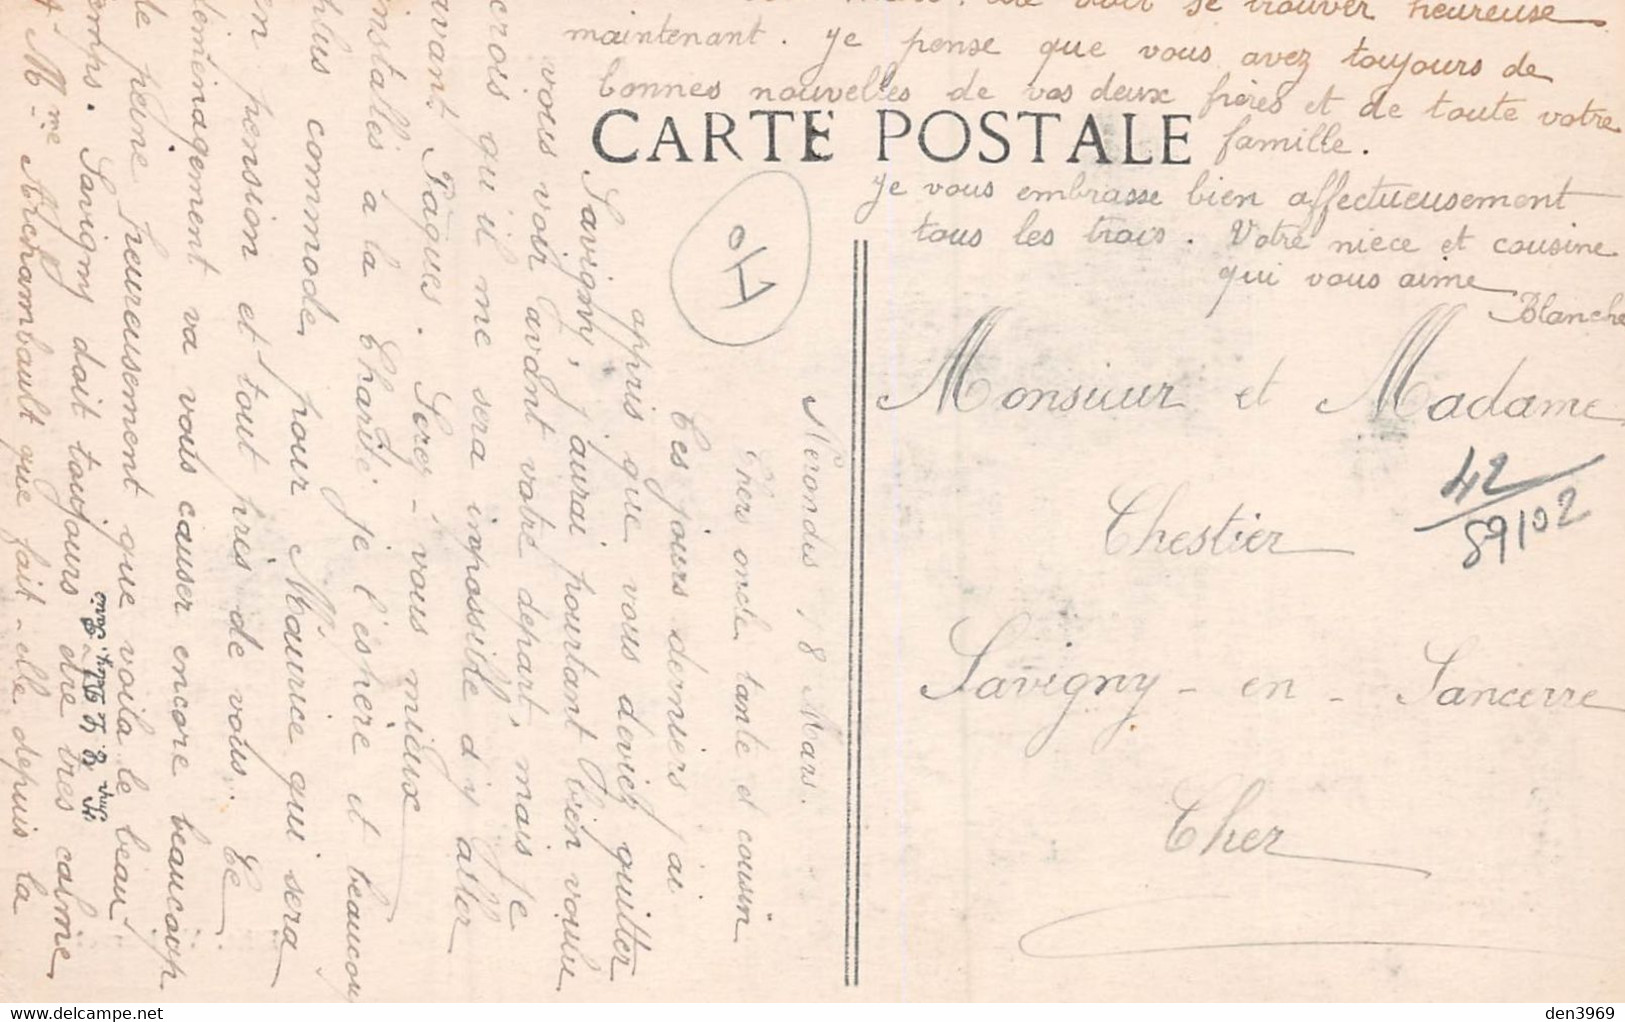 Nerondes, 8 Mars.
Chers oncle tante et cousin
Ces jours derniers j'ai
appris que vous deviez quitter
Savigny, j'aurai pourtant bien voulu
vous voir avant votre départ, mais je
crois qu'il me sera impossible d'y aller
avant Pâques. Serez-vous mieux
installés à la Charité, je l'éspère et beaucoup
plus commode pour Maurice qui sera
en pension et tout près de vous. Ce
déménagement va vous causer encore beaucoup
de peine heureusement que voila le beau
temps. Savigny doit toujours être très calme
et Mme Archambault que fait-elle depuis la
se trouver heureuse
maintenant. Je pense que vous avez toujours de
bonnes nouvelles de vos deux frères et de toute votre
famille.
CARTE POSTALE
Je vous embrasse bien affectueusement
tous les trois. Votre nièce et cousine
qui vous aime
Blanche
Monsieur et Madame
Chestier
Savigny-en-Sancerre
Cher
42
89102
den3969